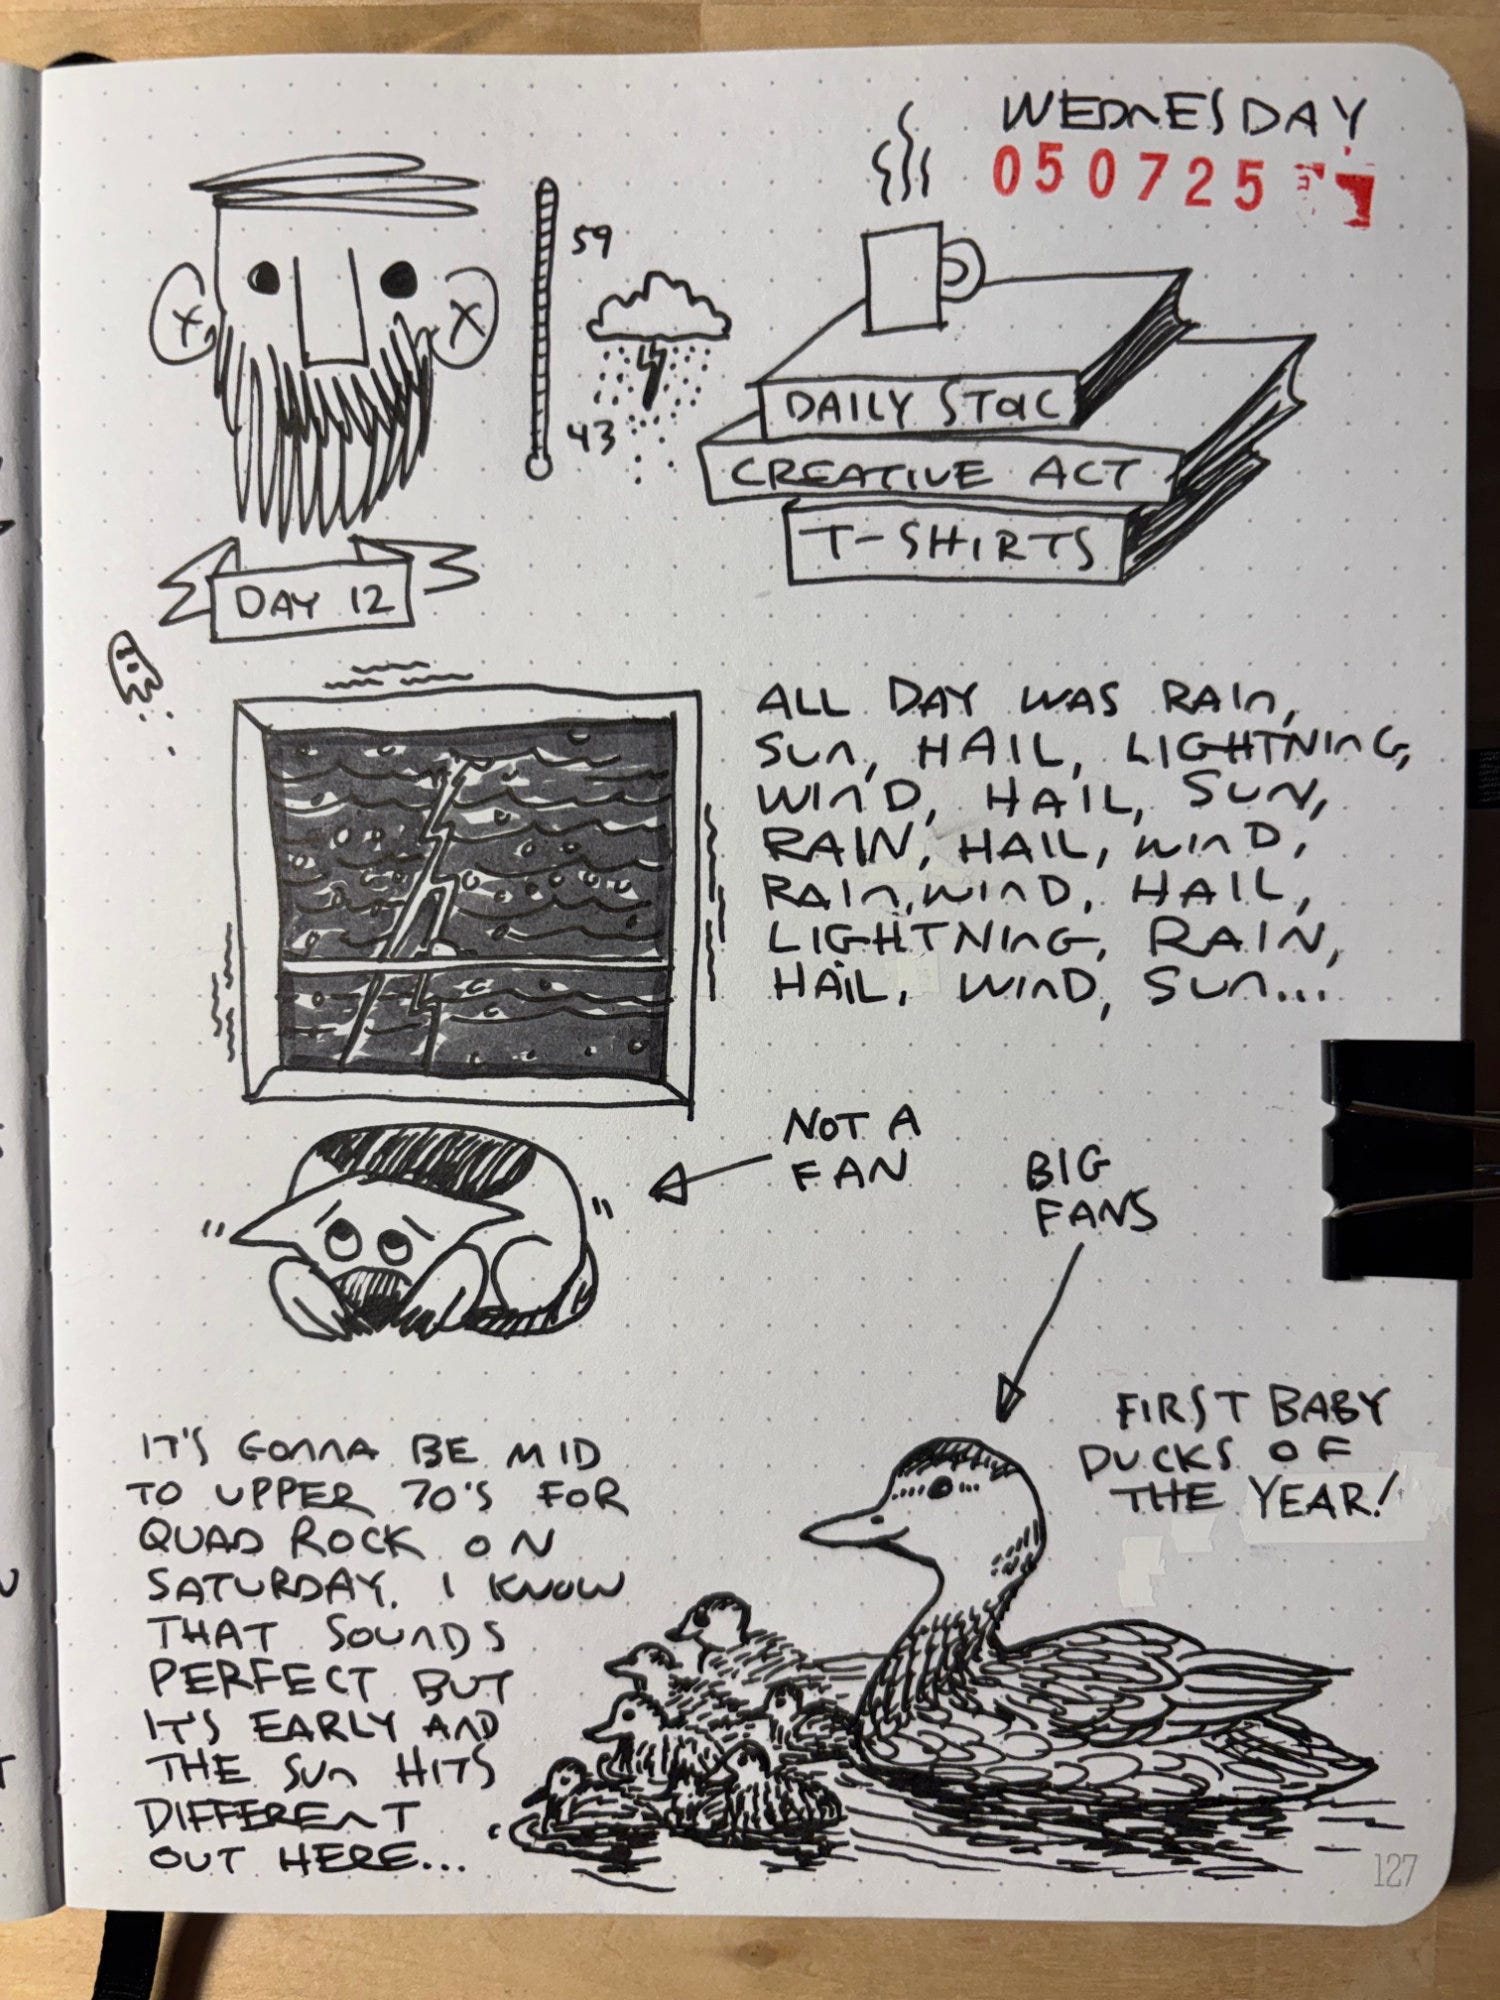 WEDNESDAY
050725
59
43
DAILY STOIC
CREATIVE ACT
T-SHIRTS
DAY 12
ALL DAY WAS RAIN,
SUN, HAIL, LIGHTNING,
WIND, HAIL, SUN,
RAIN, HAIL, WIND,
RAIN, WIND, HAIL,
LIGHTNING, RAIN,
HAIL, WIND, SUN...
NOT A
FAN
BIG
FANS
FIRST BABY
DUCKS OF
THE YEAR!
IT'S GONNA BE MID
TO UPPER 70'S FOR
QUAD ROCK ON
SATURDAY. I KNOW
THAT SOUNDS
PERFECT BUT
IT'S EARLY AND
THE SUN HITS
DIFFERENT
OUT HERE...
127